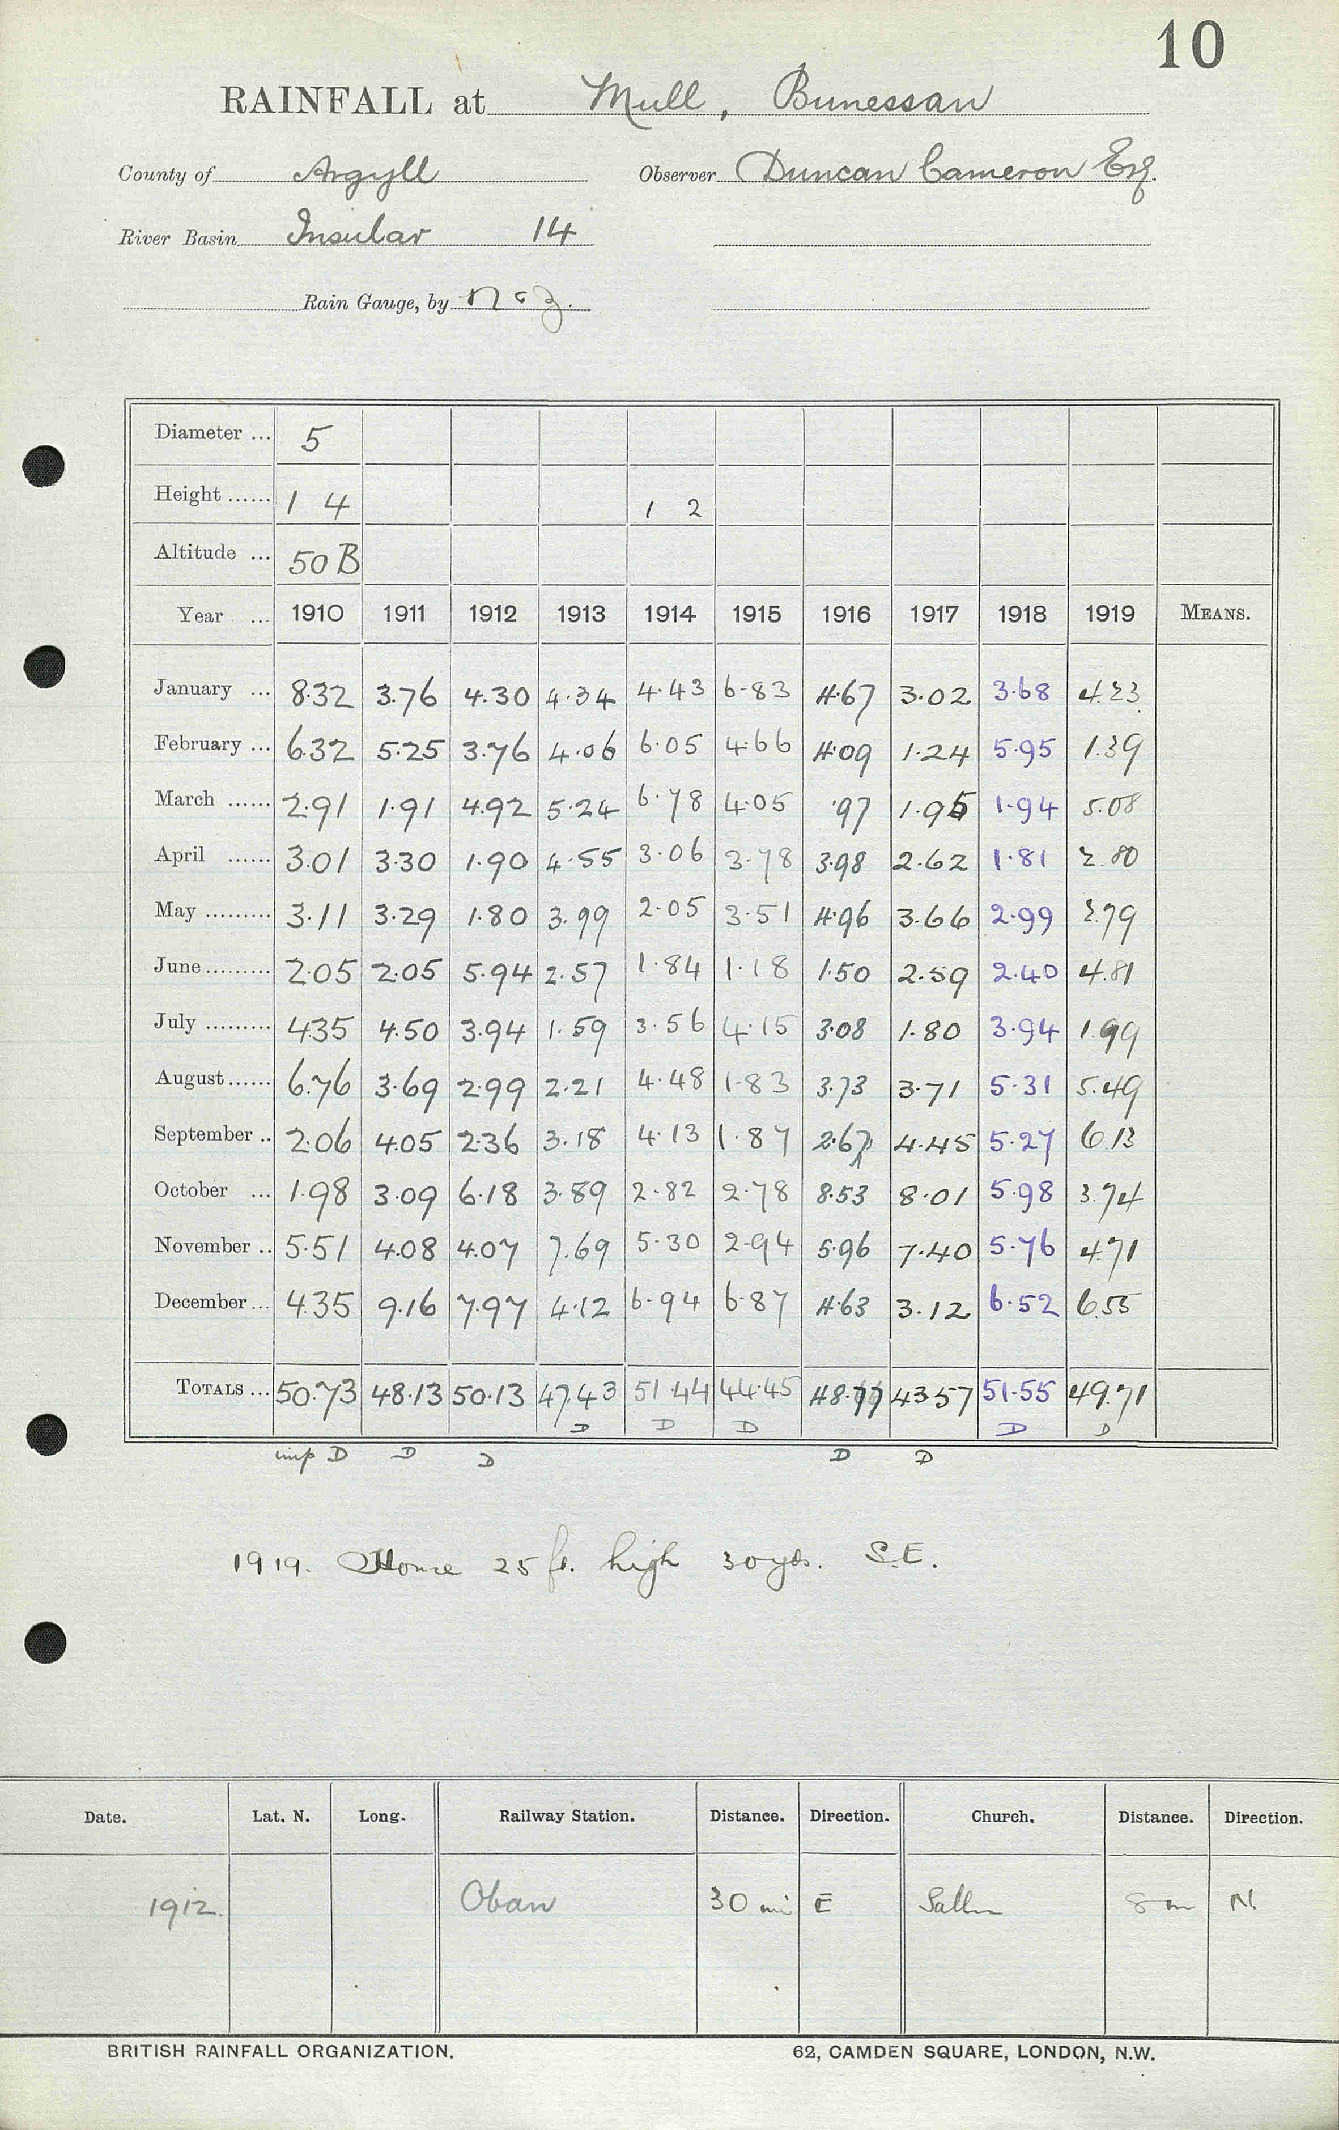 10
RAINFALL at Mull, Bunessan
County of Argyll Observer Duncan Cameron Esq.
River Basin Insular 14
Rain Gauge, by
Diameter ... 5
Height ...... 1 4 1 2
Altitude ... 50 B
Year ... 1910 1911 1912 1913 1914 1915 1916 1917 1918 1919 MEANS.
January ... 8.32 3.76 4.30 4.34 4.43 6.83 4.67 3.02 3.68 4.23
February ... 6.32 5.25 3.76 4.06 6.05 4.66 4.09 1.24 5.95 1.39
March ...... 2.91 1.91 4.92 5.24 6.78 4.05 .97 1.95 1.94 5.08
April ...... 3.01 3.30 1.90 4.55 3.06 3.78 3.98 2.62 1.81 2.80
May ......... 3.11 3.29 1.80 3.99 2.05 3.51 4.96 3.66 2.99 2.79
June ......... 2.05 2.05 5.94 2.57 1.84 1.18 1.50 2.59 2.40 4.81
July ......... 4.35 4.50 3.94 1.59 3.56 4.15 3.08 1.80 3.94 1.99
August ...... 6.76 3.69 2.99 2.21 4.48 1.83 3.73 3.71 5.31 5.49
September .. 2.06 4.05 2.36 3.18 4.13 1.87 2.67 4.45 5.27 6.13
October ... 1.98 3.09 6.18 3.89 2.82 2.78 8.53 8.01 5.98 3.74
November .. 5.51 4.08 4.07 7.69 5.30 2.94 5.96 7.40 5.76 4.71
December ... 4.35 9.16 7.97 4.12 6.94 6.87 4.63 3.12 6.52 6.55
TOTALS ... 50.73 48.13 50.13 47.43 51.44 44.45 48.77 43.57 51.55 49.71
D D D D D
imp D D D D D
1919. House 25 ft. high 30 yds. S.E.
Date. Lat. N. Long. Railway Station. Distance. Direction. Church. Distance. Direction.
1912. Oban 30 mi E 8 m N.
BRITISH RAINFALL ORGANIZATION. 62, CAMDEN SQUARE, LONDON, N.W.